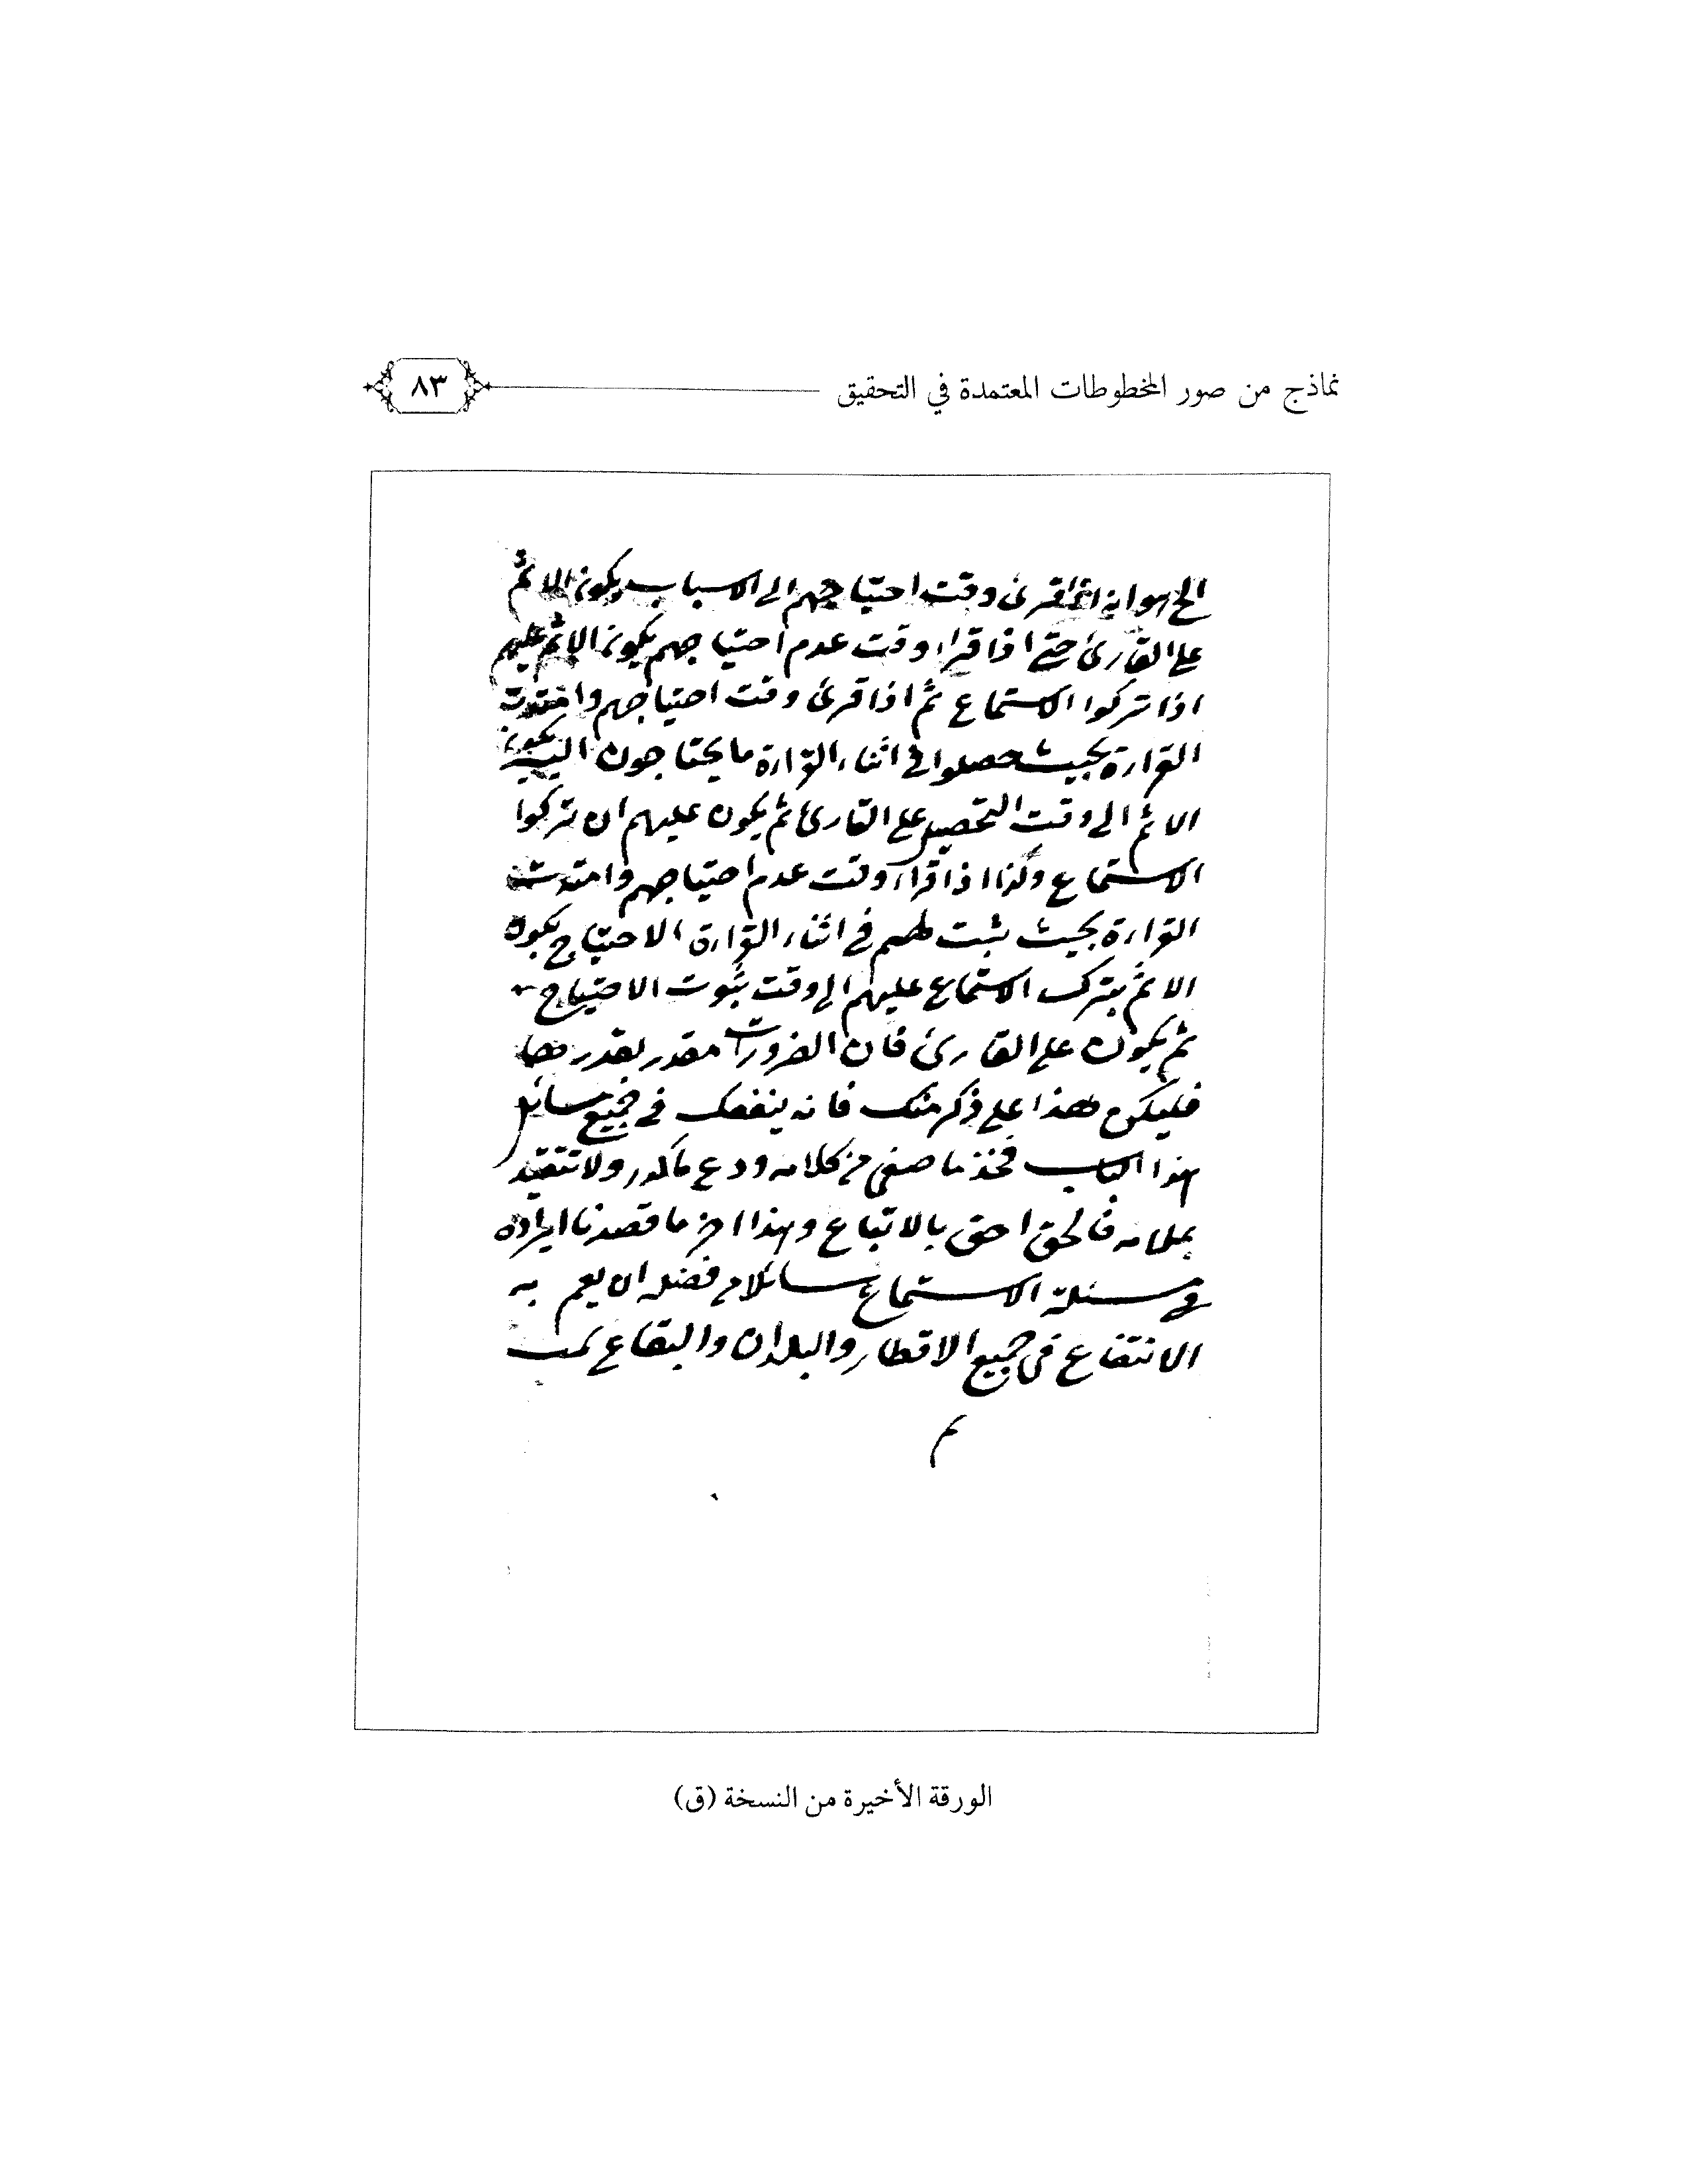 نماذج من صور المخطوطات المعتمدة في التحقيق
٨٣
الخ هو انه اذا قرئ وقت احتياجهم الى الاسباب يكون الاثم
على القارئ حتى اذا قراء وقت عدم احتياجهم يكون الاثم عليهم
اذا تركوا الاستماع ثم اذا قرئ وقت احتياجهم وامتدت
القراءة بحيث حصلوا في اثناء القراءة ما يحتاجون اليه يكون
الاثم الى وقت التحصيل على القارئ ثم يكون عليهم ان تركوا
الاستماع وكذا اذا قراء وقت عدم احتياجهم وامتدت
القراءة بحيث يثبت لهم في اثناء القراءة الاحتياج يكون
الاثم بترك الاستماع عليهم الى وقت ثبوت الاحتياج
ثم يكون على القارئ فان الضرورات مقدر بقدرها
فليكن هذا على ذكر منك فانه ينفعك في جميع مسائل
هذا الكتاب فخذ ما صفى من كلامه ودع ما كدر ولا تتقيد
بملامه فالحق احق بالاتباع وهذا اخر ما قصدنا ايراده
في مسئلة الاستماع سائلا من فضله ان يعم به
الانتفاع في جميع الاقطار والبلدان والبقاع تمت
م
الورقة الأخيرة من النسخة (ق)